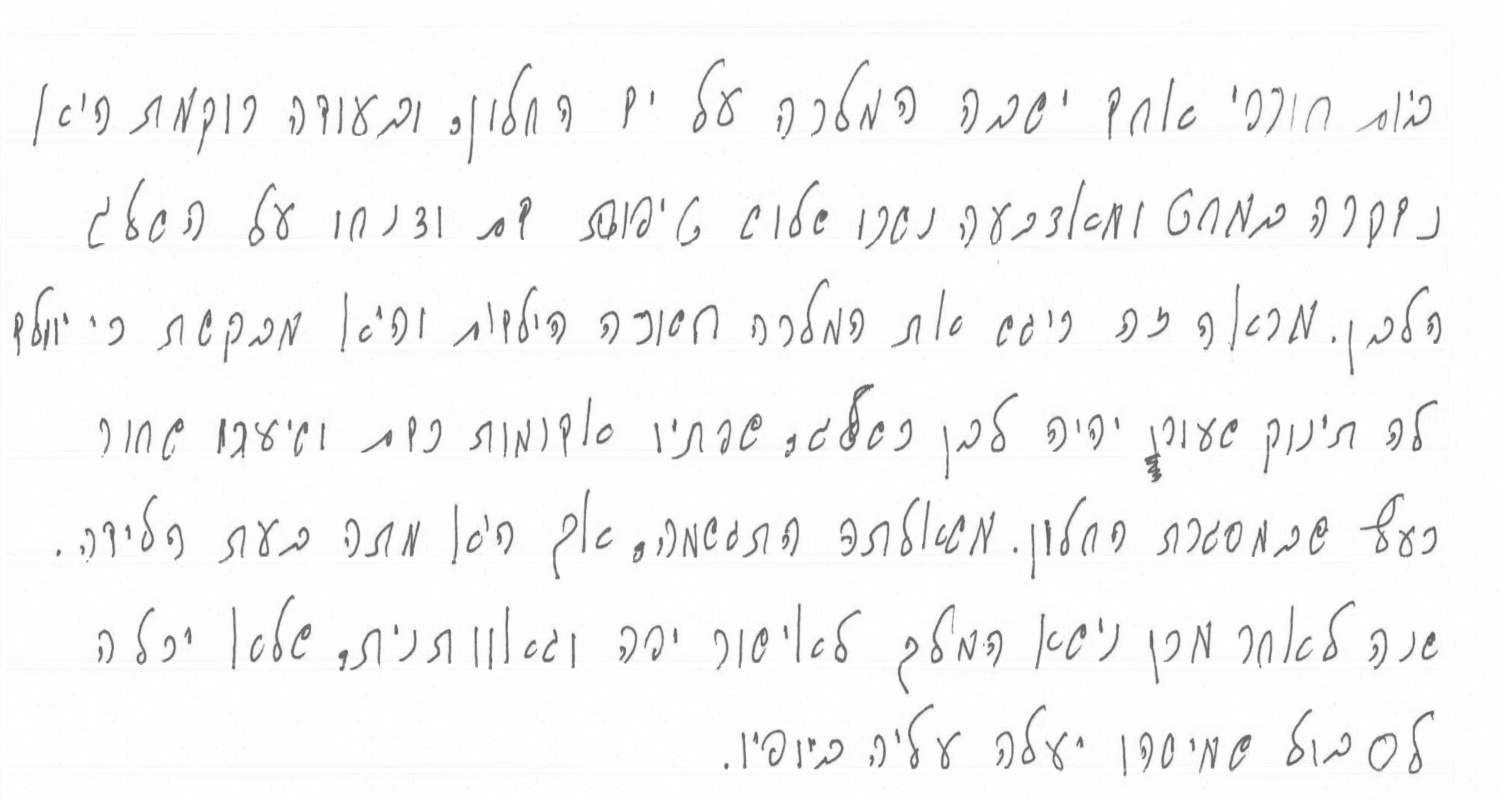 ביום חורפי אחד ישבה המלכה על יד החלון, ובעודה רוקמת היא
נדקרה במחט ומאצבעה נשרו שלוש טיפות דם וצנחו על השלג
הלבן. מראה זה ריגש את המלכה חשוכה הילדים והיא מבקשת כי יוולד
לה תינוק שעורו יהיה לבן כשלג, שפתיו אדומות כדם ושיערו שחור
כעץ שבמסגרת החלון. משאלתה התגשמה, אך היא מתה בעת הלידה.
שנה לאחר מכן נישא המלך לאישה יפה וגאוותנית, שלא יכלה
לסבול שמישהו יעלה עליה ביופיו.